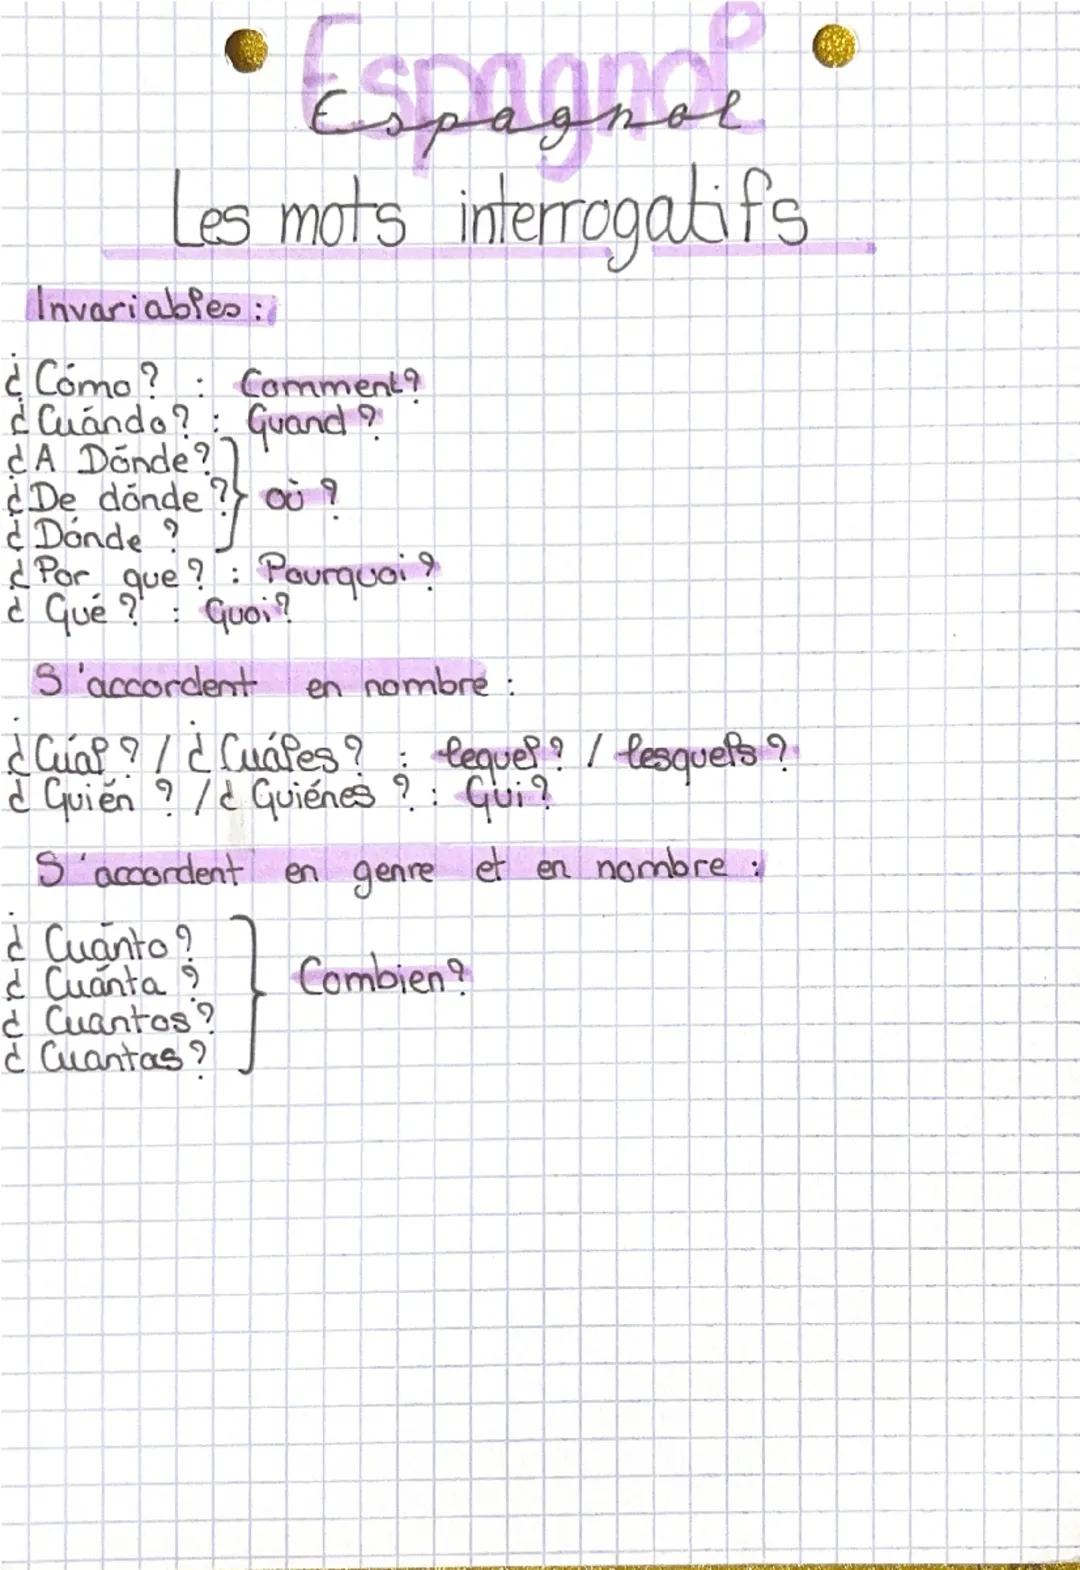 Espagnol
Espagnol
Les mots interrogatifs
Invariables :
¿ Cómo ? : Comment ?
¿ Cuándo ? : Quand ?
¿ A Dónde ?
¿ De dónde ? } où ?
¿ Dónde ?
¿ Por que ? : Pourquoi ?
¿ Qué ? : Quoi ?
S'accordent en nombre :
¿ Cuál ? / ¿ Cuáles ? : lequel ? / lesquels ?
¿ Quién ? / ¿ Quiénes ? : Qui ?
S'accordent en genre et en nombre :
¿ Cuánto ?
¿ Cuánta ? } Combien ?
¿ Cuantos ?
¿ Cuantas ?